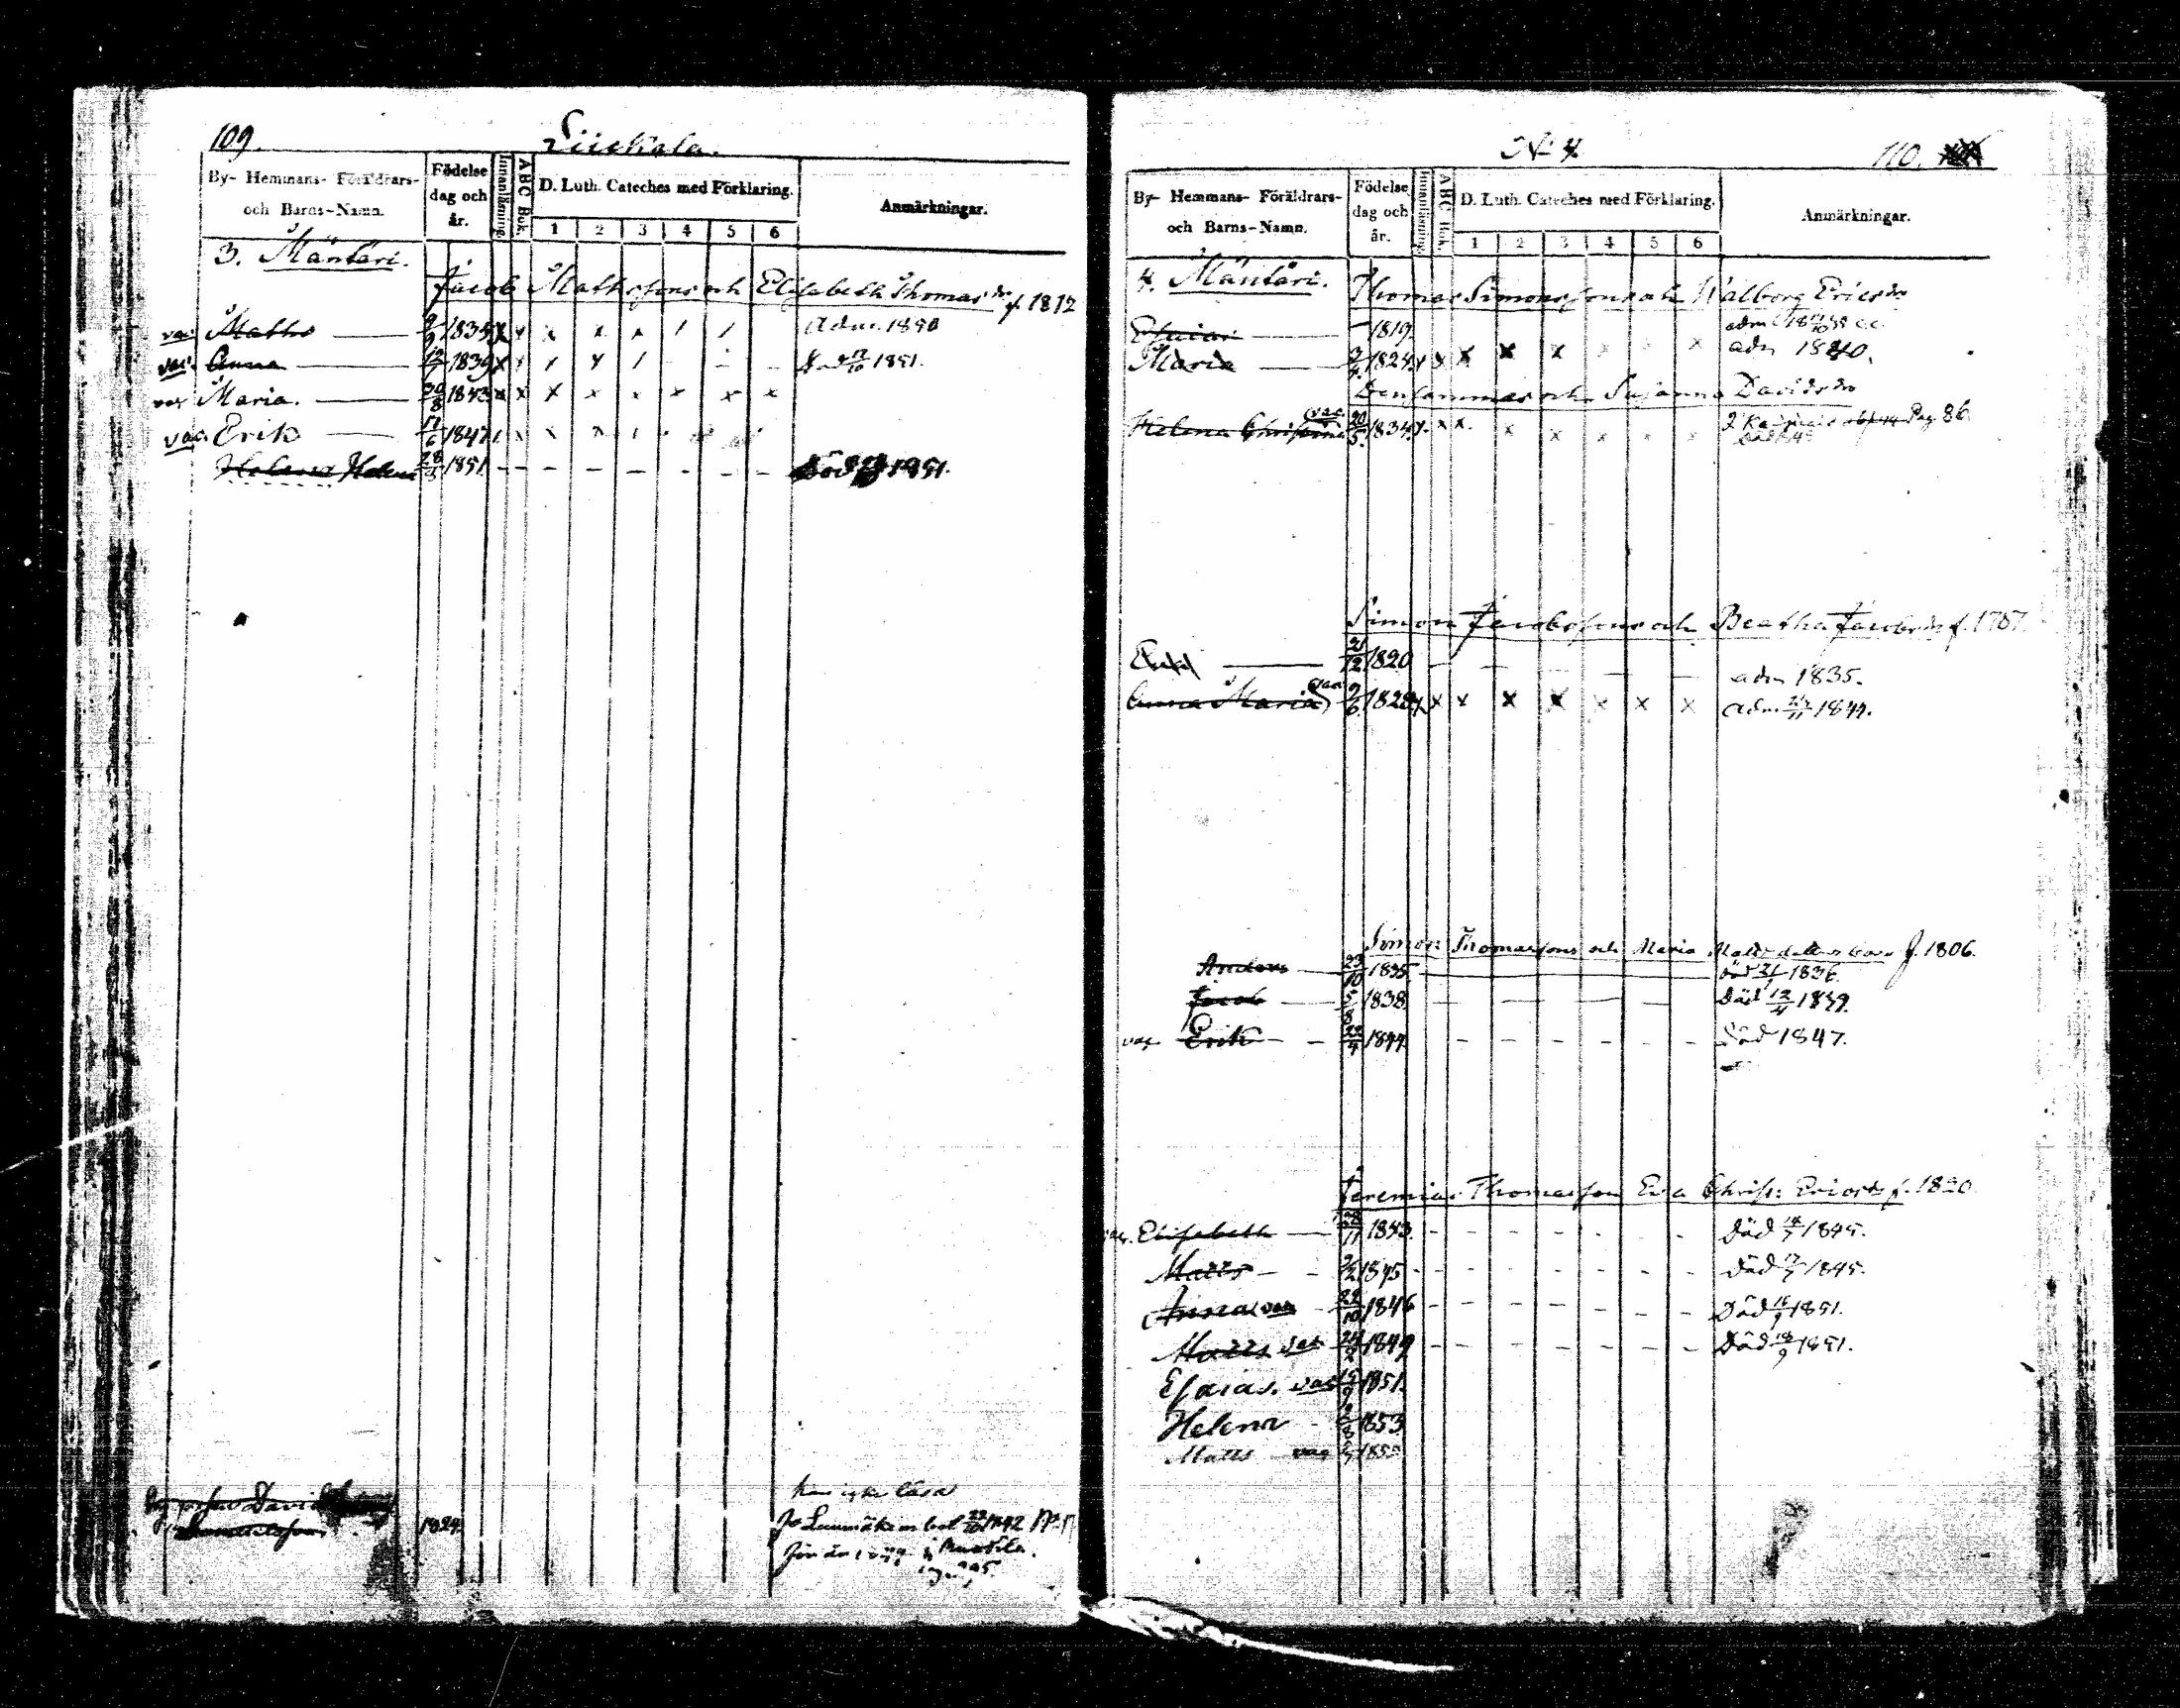 109.
Siickala.
By- Hemmans- Föräldrars- och Barns-Namn.
Födelse dag och år.
Innanläsning.
ABC Bok.
D. Luth. Cateches med Förklaring.
1 2 3 4 5 6
Anmärkningar.
3. Mäntäri.
Jacob Mathssons och Elisabeth Thomasdr f. 1812
vac Matho 1835 x x x x x / / Adm. 1850
vac. Anna 12/7 1839 x x x x / - - Död 1851.
vac Maria. 20/8 1843 x x x x x x x x
vac. Erik 17/6 1847
Helena 28/3 1851 - - - - - - - Död 1851.
David
1824.
kan icke läsa
1842 No
Nº 4
110.
By- Hemmans- Föräldrars- och Barns-Namn.
Födelse dag och år.
Innanläsning.
ABC Bok.
D. Luth. Cateches med Förklaring.
1 2 3 4 5 6
Anmärkningar.
4. Mäntäri.
Thomas Simonssons och Walborg Ericsdr
Esaias 1819. adm
Maria 1824 x x x x x x x x adm 1840.
Densammas och Susanna Davidsdr
Helena Christina vac 20/5 1834 x x x x x x x Pag. 86
Simon Jacobssons och Beatha Jacobsdr f. 1787.
21/12 1820 - - - - - adm 1835.
Anna Maria vac 2/6 1828 x x x x x x x x adm 1844.
Simon Thomassons och Maria Matts dotters barn f. 1806.
Anders 23/10 1835 död 21/1 1836.
Jacob 5/8 1838. - - - - - Död 12/4 1839.
vac Erik 22/4 1844 - - - - - - Död 1847.
Jeremias Thomasson Eva Christ: Ericsdr f. 1820.
vac. Elisabeth 1843. - - - - - - - Död 1845.
Matts 2/2 1845 - - - - - - - Död 1845.
Anna vac 22/10 1846 - - - - - - - Död 1851.
Matts vac 24/2 1849 - - - - - - - Död 18/9 1851.
Esaias. vac 1851.
Helena 1853
Matts vac